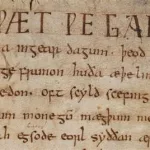 ǷÆT ǷE GAR
na ingear dagum. þeod
ge frunon huða æþelin
edon. oft scyld scefing
um monegū mægþum
ah egsode eorl syððan ær